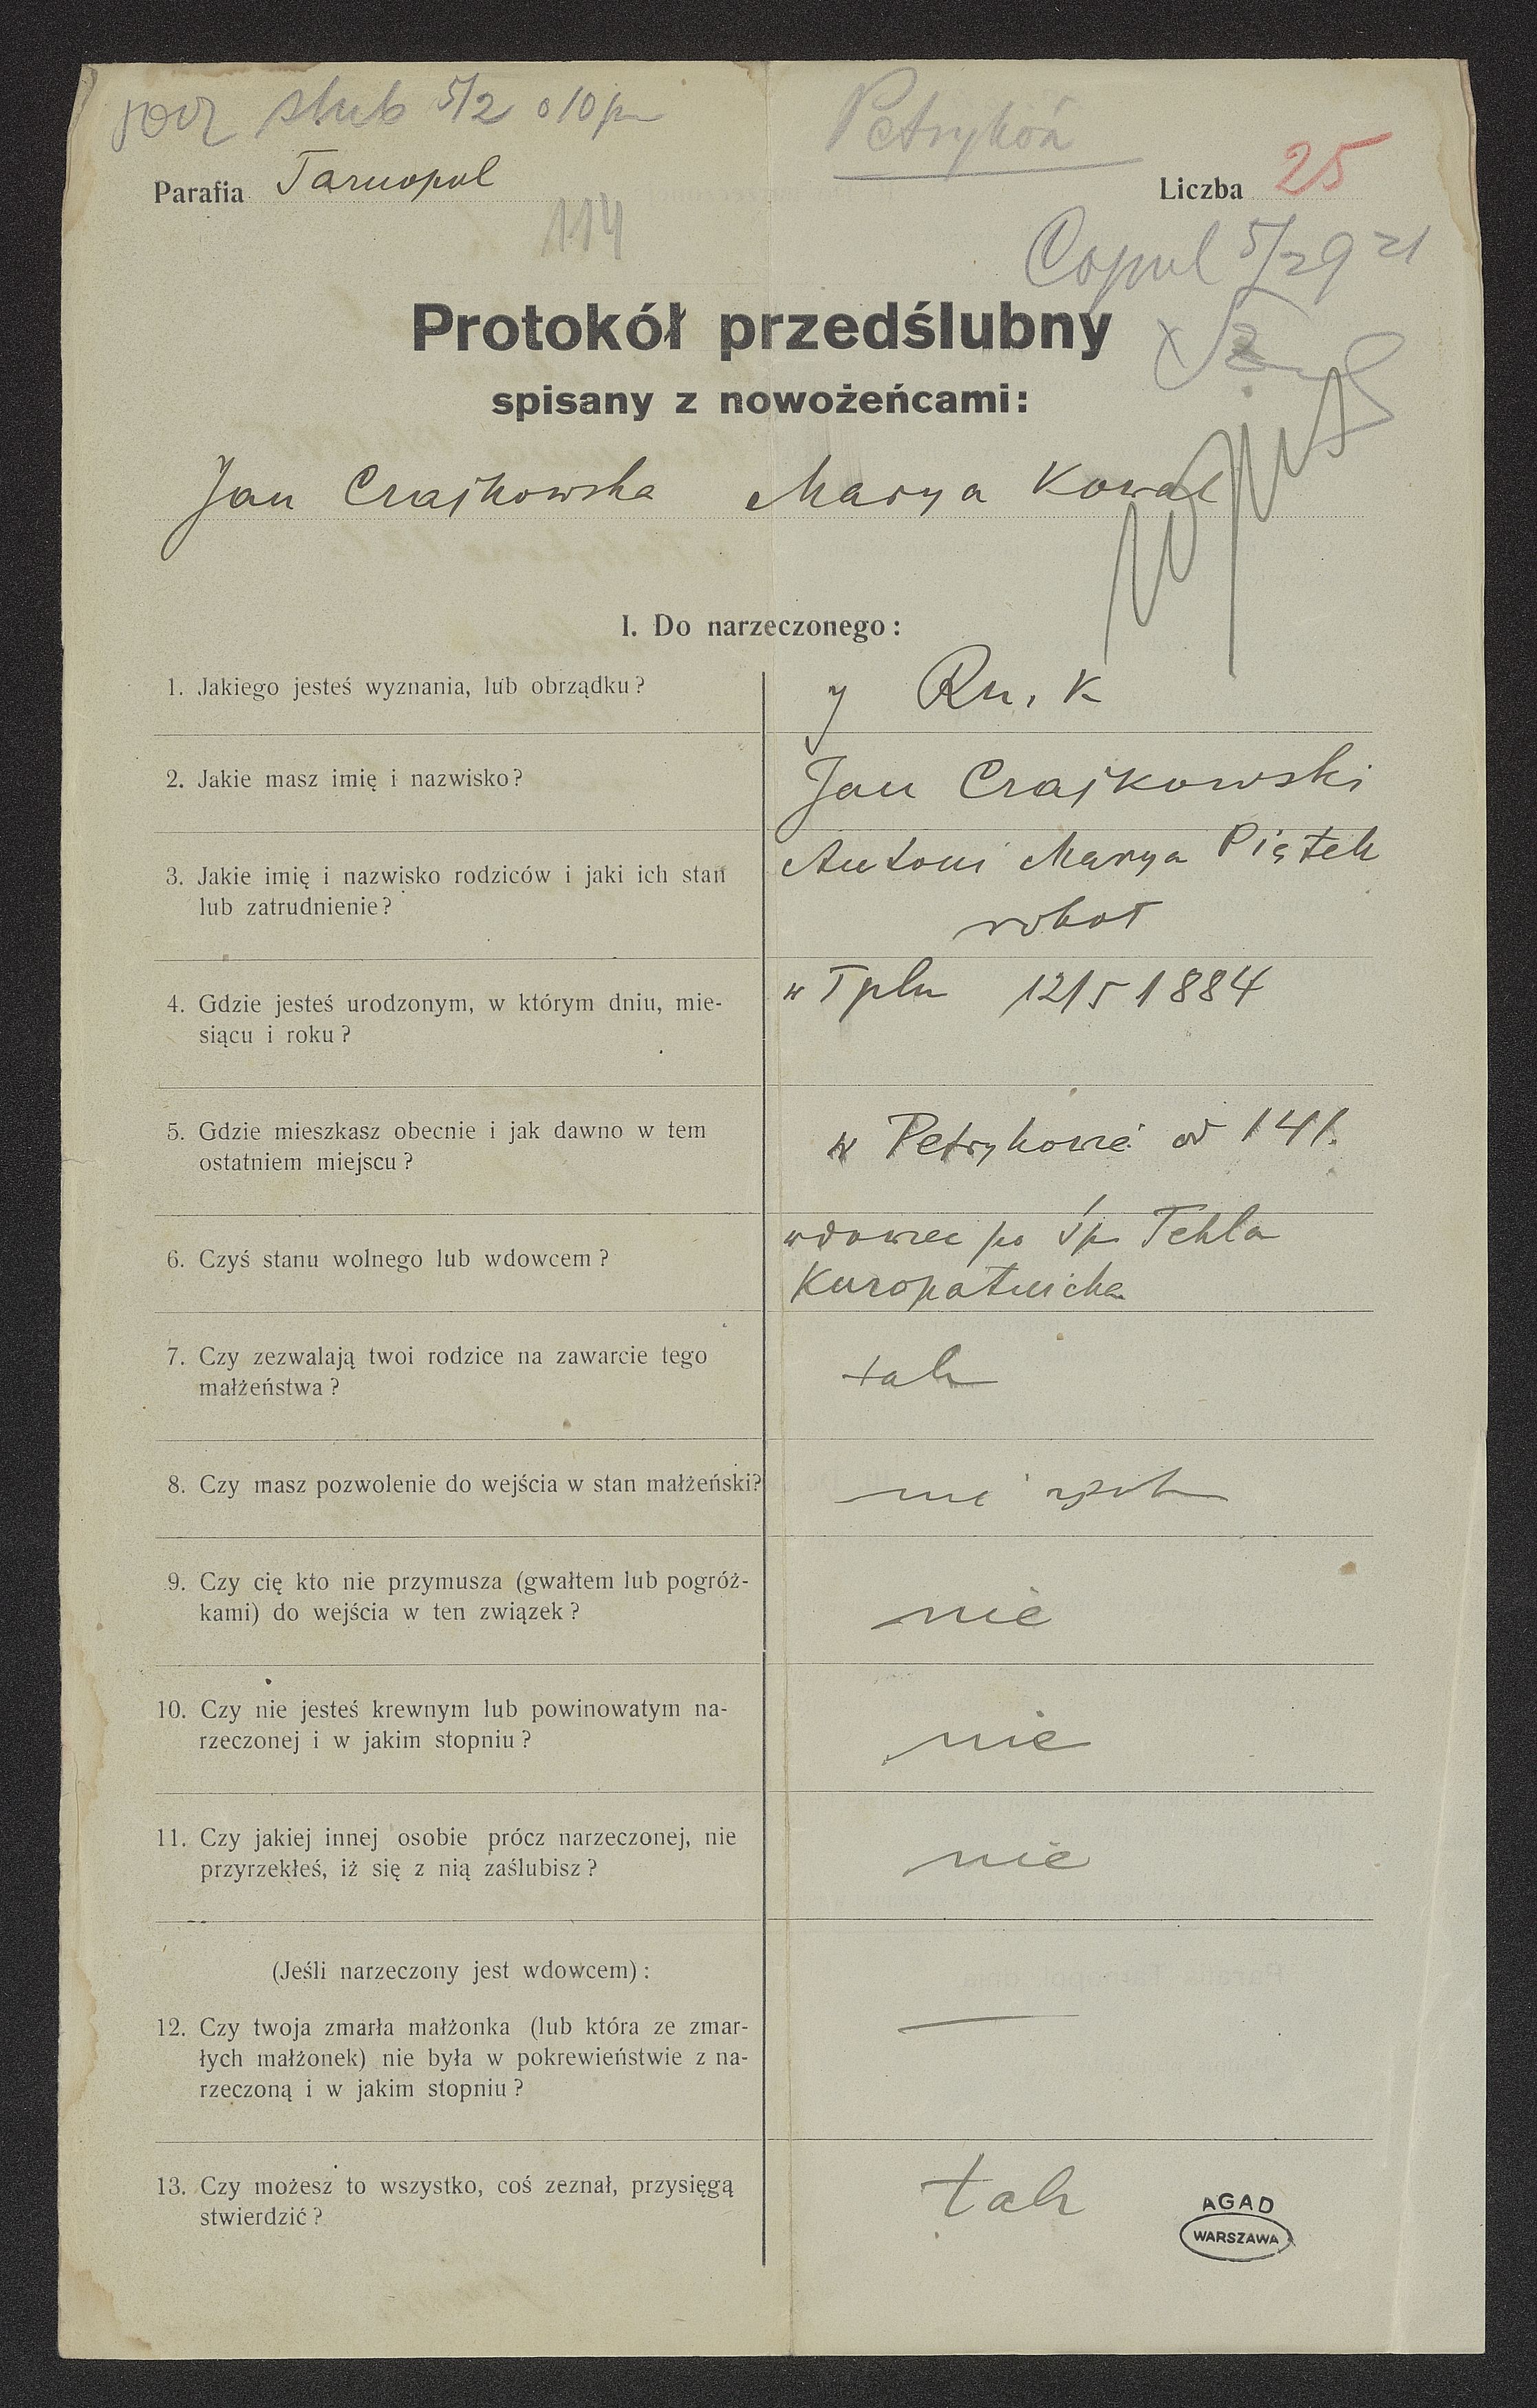 ślub 5/2 o 10
Petryków
Parafia Tarnopol
Liczba 25
114
Copul 5/2 921
Protokół przedślubny
spisany z nowożeńcami:
Jan Czajkowska Marya Kowal
I. Do narzeczonego:
1. Jakiego jesteś wyznania, lub obrządku?
K
2. Jakie masz imię i nazwisko?
Jan Czajkowski
Antoni Marya Piątek
3. Jakie imię i nazwisko rodziców i jaki ich stan
lub zatrudnienie?
robot
4. Gdzie jesteś urodzonym, w którym dniu, mie-
siącu i roku?
w Tplu 12/5 1884
5. Gdzie mieszkasz obecnie i jak dawno w tem
ostatniem miejscu?
w Petrykowie od 14 l.
6. Czyś stanu wolnego lub wdowcem?
wdowiec po śp Tekla
Kuropatnicka
7. Czy zezwalają twoi rodzice na zawarcie tego
małżeństwa?
tak
8. Czy masz pozwolenie do wejścia w stan małżeński?
nie
9. Czy cię kto nie przymusza (gwałtem lub pogróż-
kami) do wejścia w ten związek?
nie
10. Czy nie jesteś krewnym lub powinowatym na-
rzeczonej i w jakim stopniu?
nie
11. Czy jakiej innej osobie prócz narzeczonej, nie
przyrzekłeś, iż się z nią zaślubisz?
nie
(Jeśli narzeczony jest wdowcem):
12. Czy twoja zmarła małżonka (lub która ze zmar-
łych małżonek) nie była w pokrewieństwie z na-
rzeczoną i w jakim stopniu?
13. Czy możesz to wszystko, coś zeznał, przysięgą
stwierdzić?
tak
AGAD
WARSZAWA